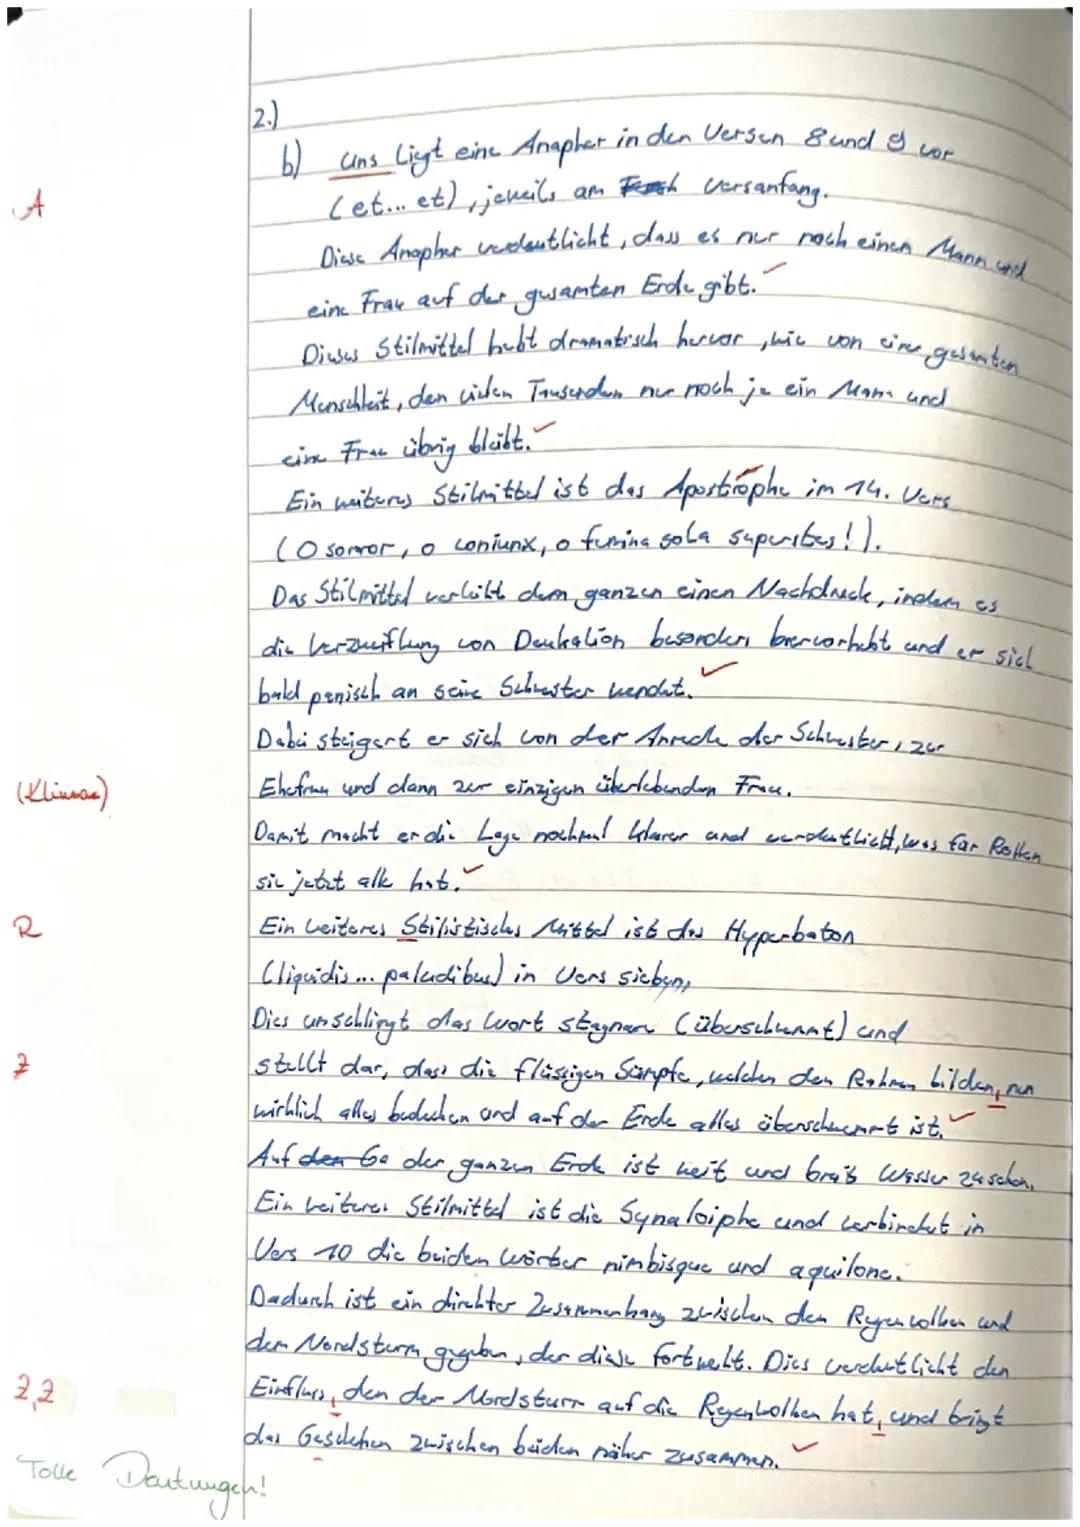 2.)
b) uns liegt eine Anapher in den Versen 8 und 9 vor
A
(et... et), jeweils am Versanfang.
Diese Anapher verdeutlicht, dass es nur noch einen Mann und
eine Frau auf der gesamten Erde gibt. ✓
Dieses Stilmittel hebt dramatisch hervor, wie von einer gesamten
Menschheit, den vielen Tausenden nur noch je ein Mann und
eine Frau übrig bleibt. ✓
Ein weiteres Stilmittel ist das Apostrophe im 14. Vers
(O soror, o coniunx, o femina sola superstes!).
Das Stilmittel verleiht dem ganzen einen Nachdruck, indem es
die Verzweiflung von Deukalion besonders hervorhebt und er sich
bald panisch an seine Schwester wendet. ✓
Dabei steigert er sich von der Anrede der Schwester, zur
(Klimax)
Ehefrau und dann zur einzigen überlebenden Frau.
Damit macht er die Lage nochmal klarer und verdeutlicht, was für Rollen
sie jetzt alle hat. ✓
R
Ein weiteres Stilistisches Mittel ist das Hyperbaton
(liquidis ... paludibus) in Vers sieben,
Dies umschlingt das Wort stagnare (überschwemmt) und
Z
stellt dar, dass die flüssigen Sümpfe, welchen den Rahmen bilden, nun
wirklich alles bedecken und auf der Erde alles überschwemmt ist. ✓
Auf den Ge der ganzen Erde ist weit und breit Wasser zu sehen.
Ein weiteres Stilmittel ist die Synaloiphe und verbindet in
Vers 10 die beiden Wörter nimbisque und aquilone.
Dadurch ist ein direkter Zusammenhang zwischen den Regenwolken und
dem Nordsturm gegeben, der diese fortweht. Dies verdeutlicht den
Z, Z
Einfluss, den der Nordsturm auf die Regenwolken hat, und bringt
das Geschehen zwischen beiden näher zusammen. ✓
Tolle Deutungen!